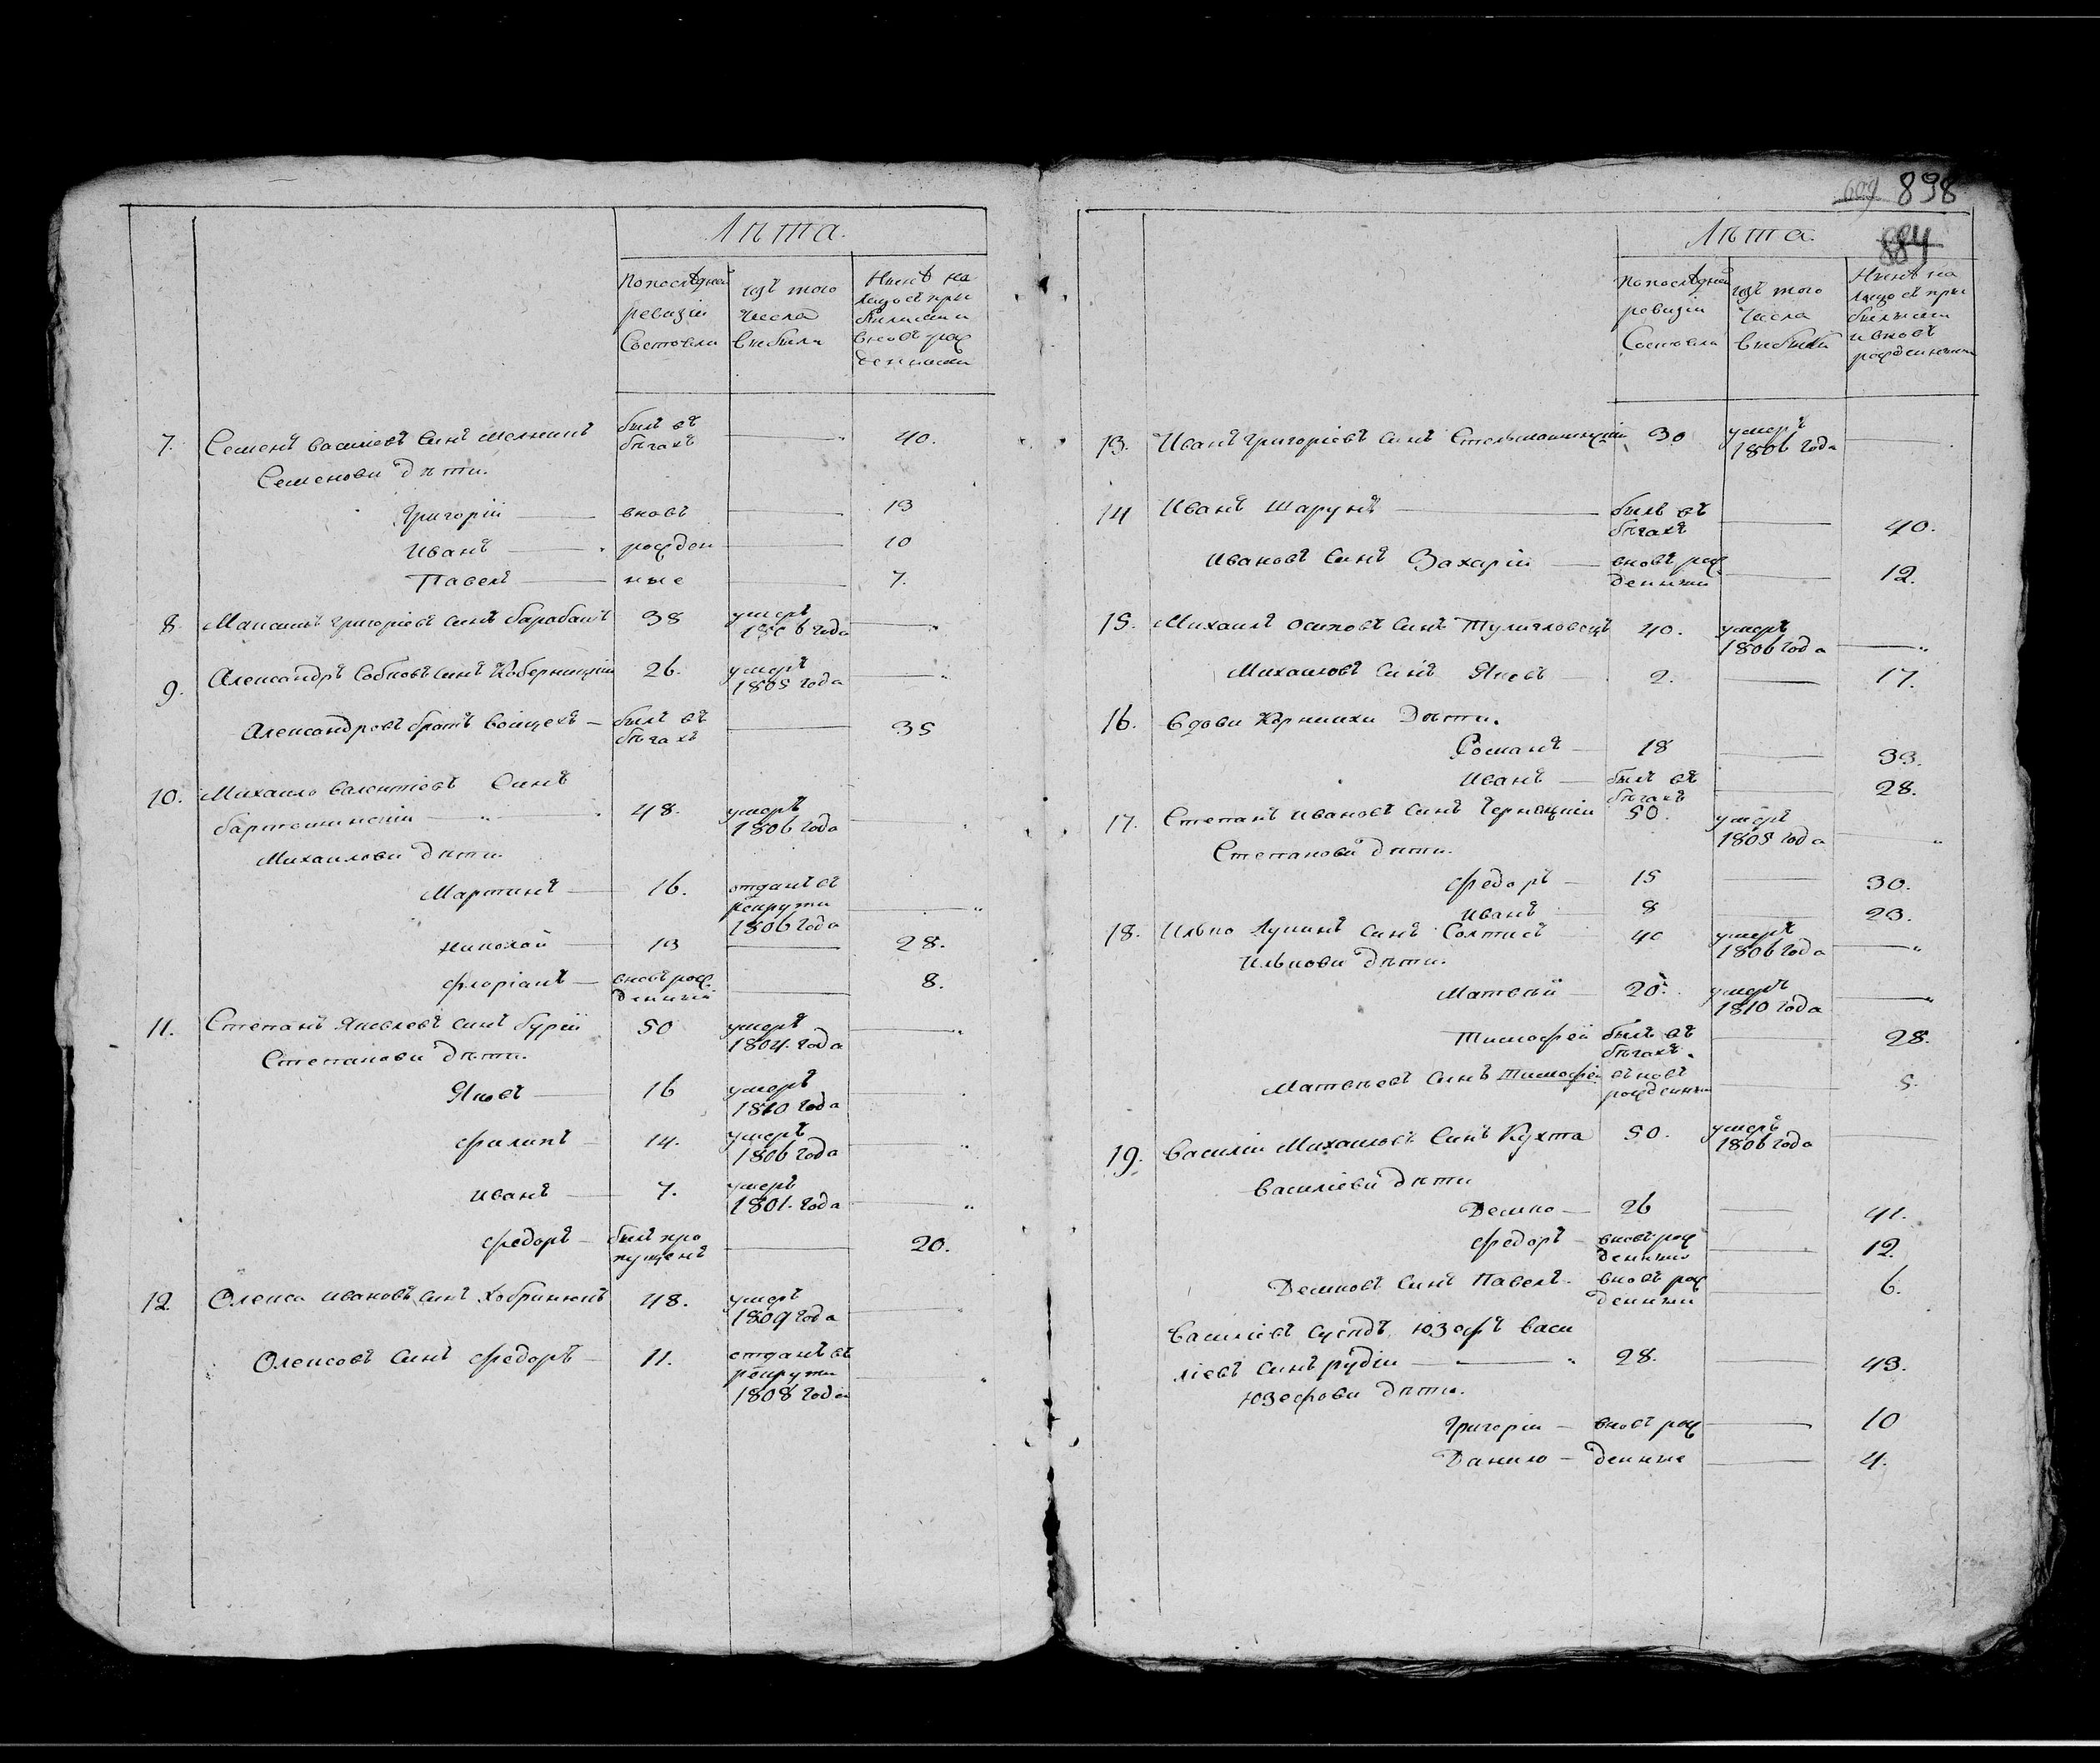 Лѣта.
По последней ревизіи Состояли
изъ того числа выбыли
Нынѣ на лицо съ прибылыми и вновь рожденными
7. Семенъ васильевъ Синъ мельникъ былъ въ бѣгахъ 40.
Семенови дѣти.
Григорій вновь 13
Иванъ рожден 10
Павелъ ные 7.
8. Максимъ григоріевъ синъ барабашъ 38 умеръ 1806 года
9. Александръ Собковъ синъ Коберницкій 26. умеръ 1805 года
Александровъ братъ войцехъ былъ въ бѣгахъ 35
10. Михайло валентіевъ Синъ
бартошинскій 48. умеръ 1806 года
Михайлови дѣти.
Мартинъ 16. отданъ въ рекруты 1806 года
николай 13 28.
флоріанъ вновь рожденный 8.
11. Степанъ Яковлевъ синъ бурій 50 умеръ 1804. года
Степанови дѣти.
Яковъ 16 умеръ 1810 года
филипъ 14. умеръ 1806 года
иванъ 7. умеръ 1801. года
федоръ былъ пропущенъ 20.
12. Олекса ивановъ синъ Хобринюкъ 48. умеръ 1809 года
Олексовъ Синъ федоръ 11. отданъ въ рекруты 1808 года
609 898
884
Лѣта.
По последней ревизіи Состояли
изъ того числа выбыли
Нынѣ на лицо съ прибылыми и вновь рожденными
13. Иванъ григоріевъ синъ Стельмашицкій 30 умеръ 1806 года
14 Иванъ шарунъ былъ въ бѣгахъ 40.
Ивановъ Синъ Захарій вновь рожденный 12.
15. Михайлъ осиповъ синъ Тулигловецъ 40. умеръ 1806 года
Михайловъ Синъ Яковъ 2. 17.
16. вдови Корниихи Дѣти.
Романъ 18 33.
Иванъ былъ въ бѣгахъ 28.
17. Степанъ ивановъ синъ Чернецкій 50. умеръ 1805 года
Степанови дѣти.
федоръ 15 30.
иванъ 8 23.
18. Илько Лукинъ синъ Солтисъ 40 умеръ 1806 года
Илькови дѣти.
Матвѣй 20. умеръ 1810 года
Тимофей былъ въ бѣгахъ. 28.
Матвѣевъ синъ Тимофей вновь рожденный 5.
19. Василій Михайловъ Синъ Кухта 50. умеръ 1806 года
василіеви дѣти
Демко 26 41.
федоръ вновь рожденный 12.
Демковъ синъ павелъ вновь рожденный 6.
Василіевъ сусѣдъ, юзефъ васи
ліевъ синъ рудій 28. 43.
юзефови дѣти.
Григорій вновь рож 10
Данило денные 4.